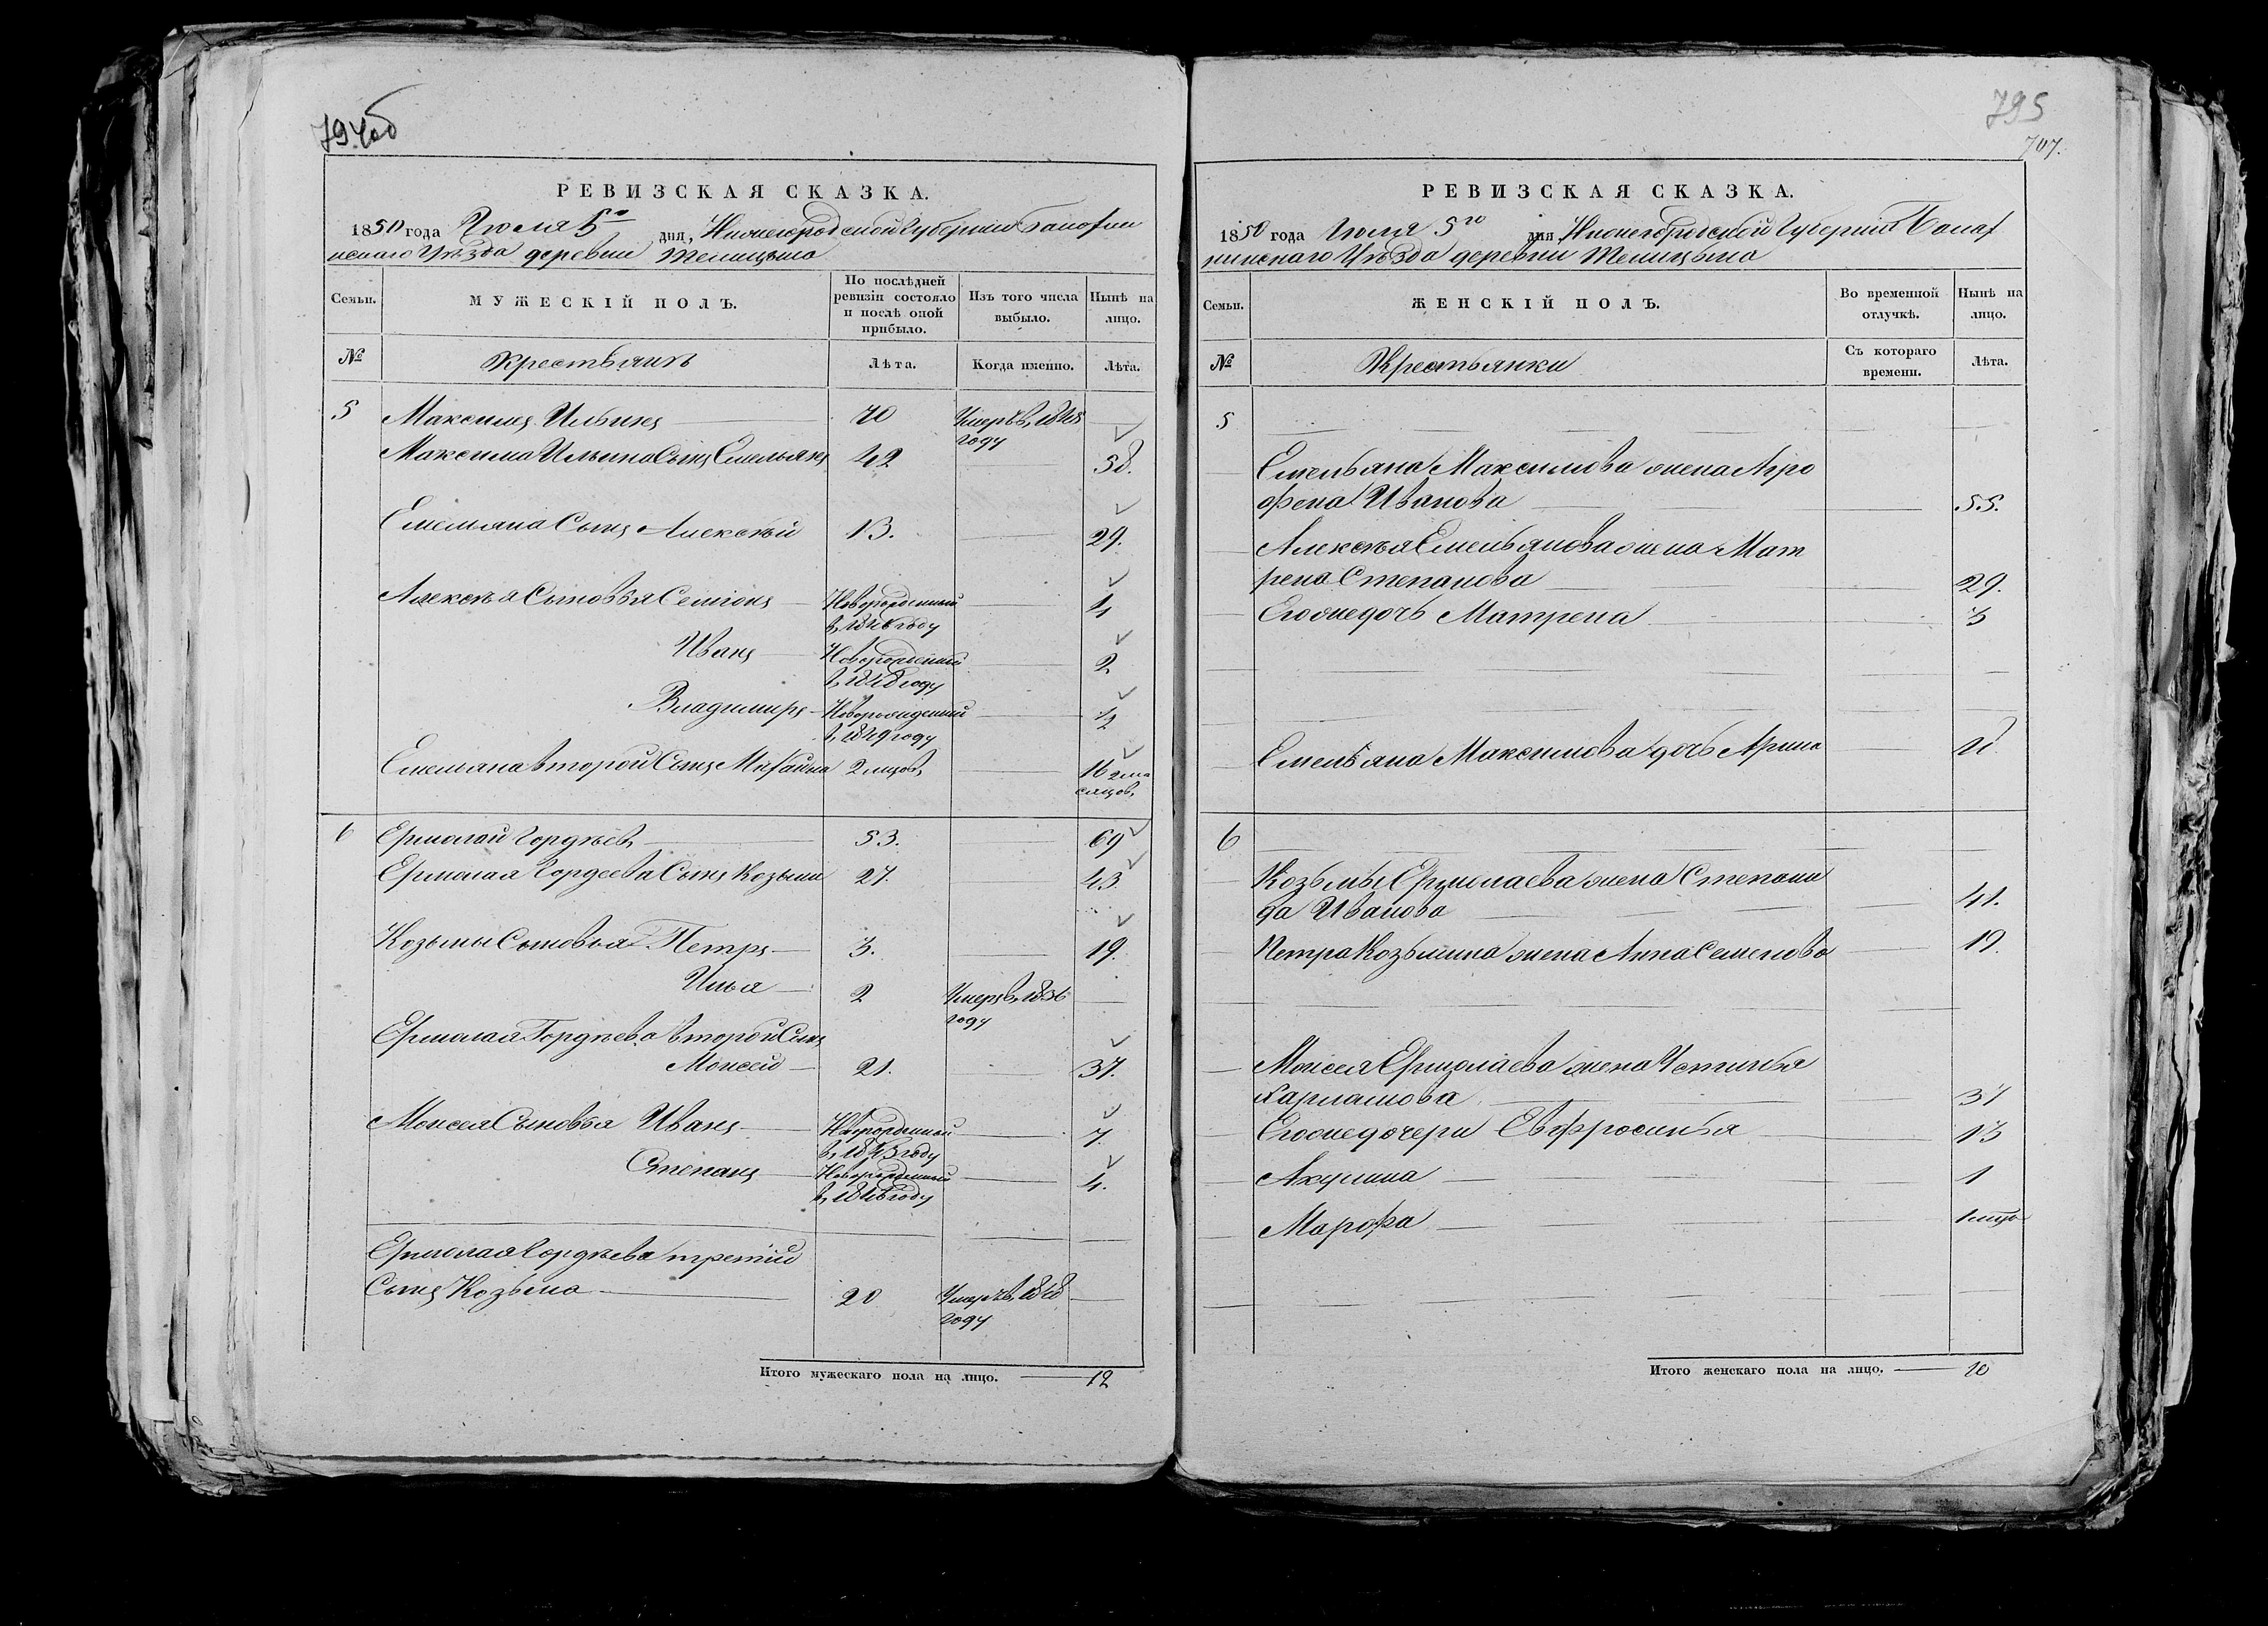 794об
РЕВИЗСКАЯ СКАЗКА.
1850 года Июля 5го дня, Нижегородской Губернии Балахни
нскаго Уѣзда деревни
Семьи.
МУЖЕСКІЙ ПОЛЪ.
По послѣдней ревизіи состояло и послѣ оной прибыло.
Изъ того числа выбыло.
Нынѣ на лицо.
№
Крестьянъ
Лѣта.
Когда именно.
Лѣта.
5 Максимъ Ильинъ 70 Умеръ въ 1848
году
Максима Ильина Сынъ Емельянъ 42 58.
Емельяна Сынъ Алексѣй 13. 29.
Алексѣя Сыновья Семіонъ Новорожденный 4
въ 1846 году
Иванъ Новорожденный 2
въ 1848 году
Владимиръ Новорожденный 1/2
въ 1849 году
Емельяна второй Сынъ Михайла 2 мцовъ 16 2 мѣ
сяцовъ
6 Ермолай Гордѣевъ 53. 69
Ермолая Гордеева Сынъ Козьма 27. 43.
Козьмы Сыновья Петръ 3. 19.
Илья 2 Умеръ въ 1836
году
Ермолая Гордѣева второй Сынъ
Моисей 21. 37.
Моисея Сыновья Иванъ Новорожденный 7.
въ 1843 году
Степанъ Новорожденный 4.
въ 1846 году
Ермолая Гордѣева третій
Сынъ Козьма 20 Умеръ въ 1848
году
Итого мужескаго пола на лицо. 12
795
707.
РЕВИЗСКАЯ СКАЗКА.
1850 года Июля 5го дня Нижегородской Губернии Балах
нинскаго Уѣзда деревни
Семьи.
ЖЕНСКІЙ ПОЛЪ.
Во временной отлучкѣ.
Нынѣ на лицо.
№
Крестьянки
Съ котораго времени.
Лѣта.
5
Емельяна Максимова жена Агро
фена Иванова 55.
Алексѣя Емельянова жена Мат
рена Степанова 29.
Его же дочь Матрена 3
Емельяна Максимова дочь Арина
6
Козьмы Ермолаева жена Степани
да Иванова 41.
Петра Козьмина жена Анна Семенова 19.
Моисея Ермолаева жена Устинья
Харламова 37
Его же дочери Евфросинья 13
Акулина 1
Марфа 1 мцъ
Итого женскаго пола на лицо. 10